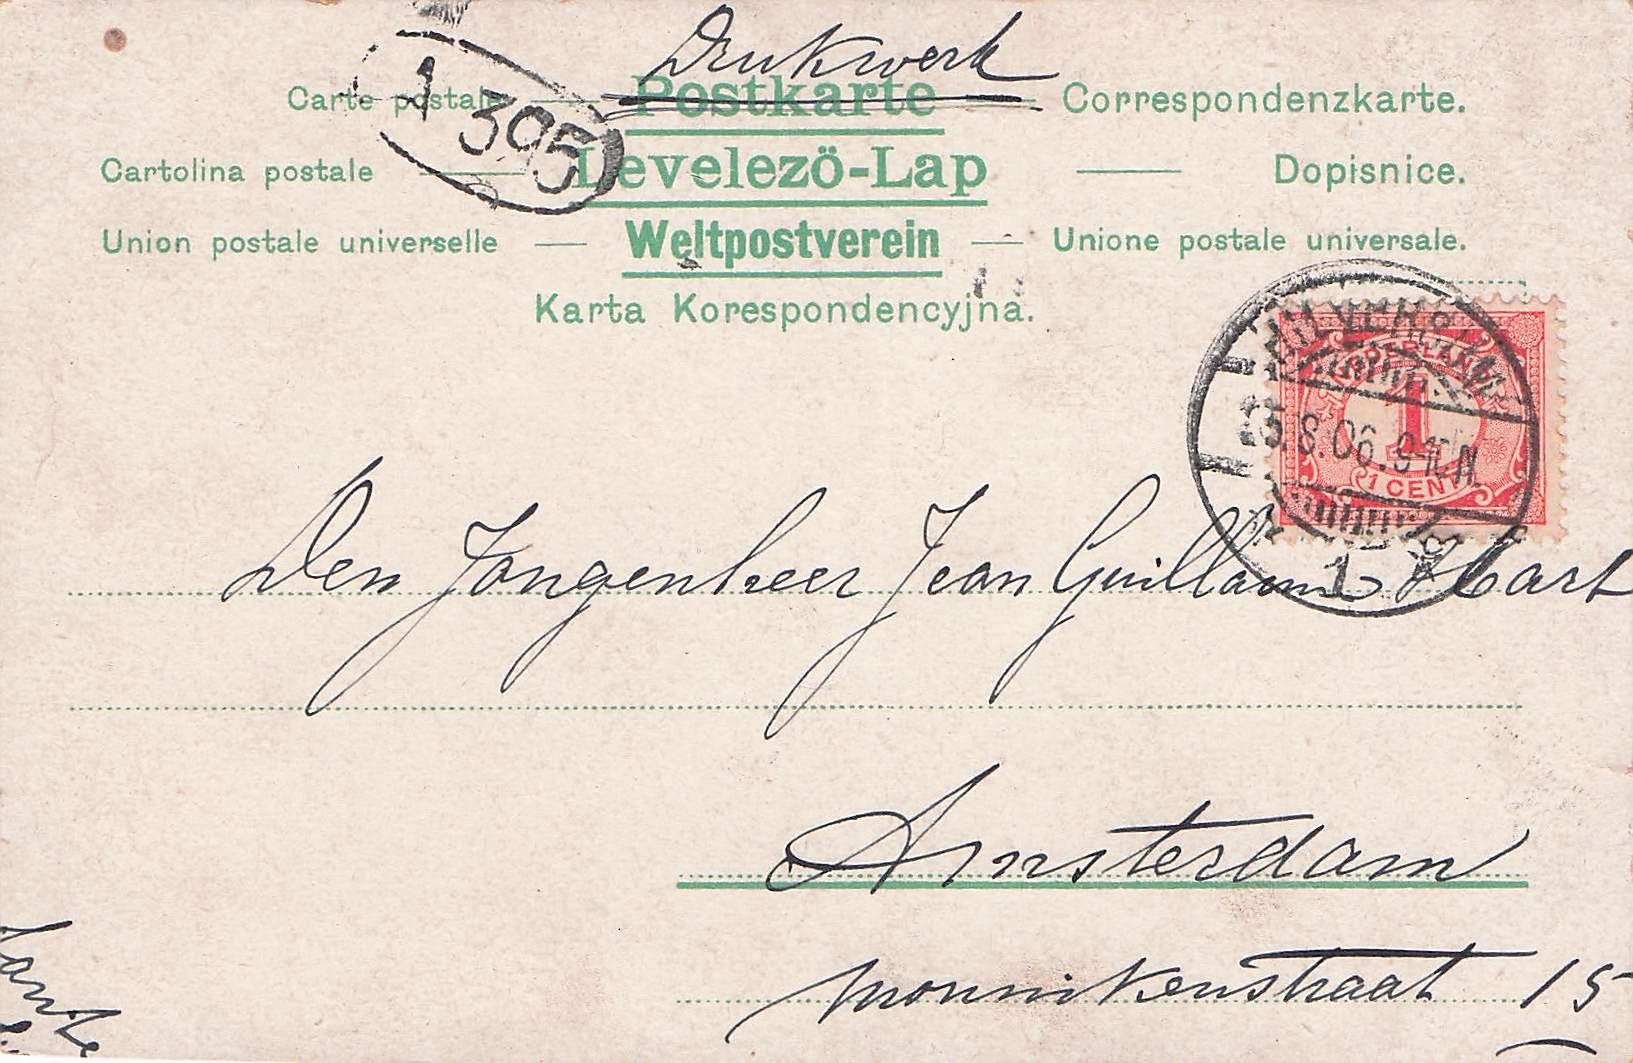 Drukwerk
Carte postale Postkarte Correspondenzkarte.
1 395
Cartolina postale Levelező-Lap Dopisnice.
Union postale universelle Weltpostverein Unione postale universale.
Karta Korespondencyjna.
HILVERSUM
NEDERLAND
1
.8.06.9-10N
1 CENT
1
Den Jongenheer Jean Guillaume Hart
Amsterdam
Monnikenstraat 15
Tante